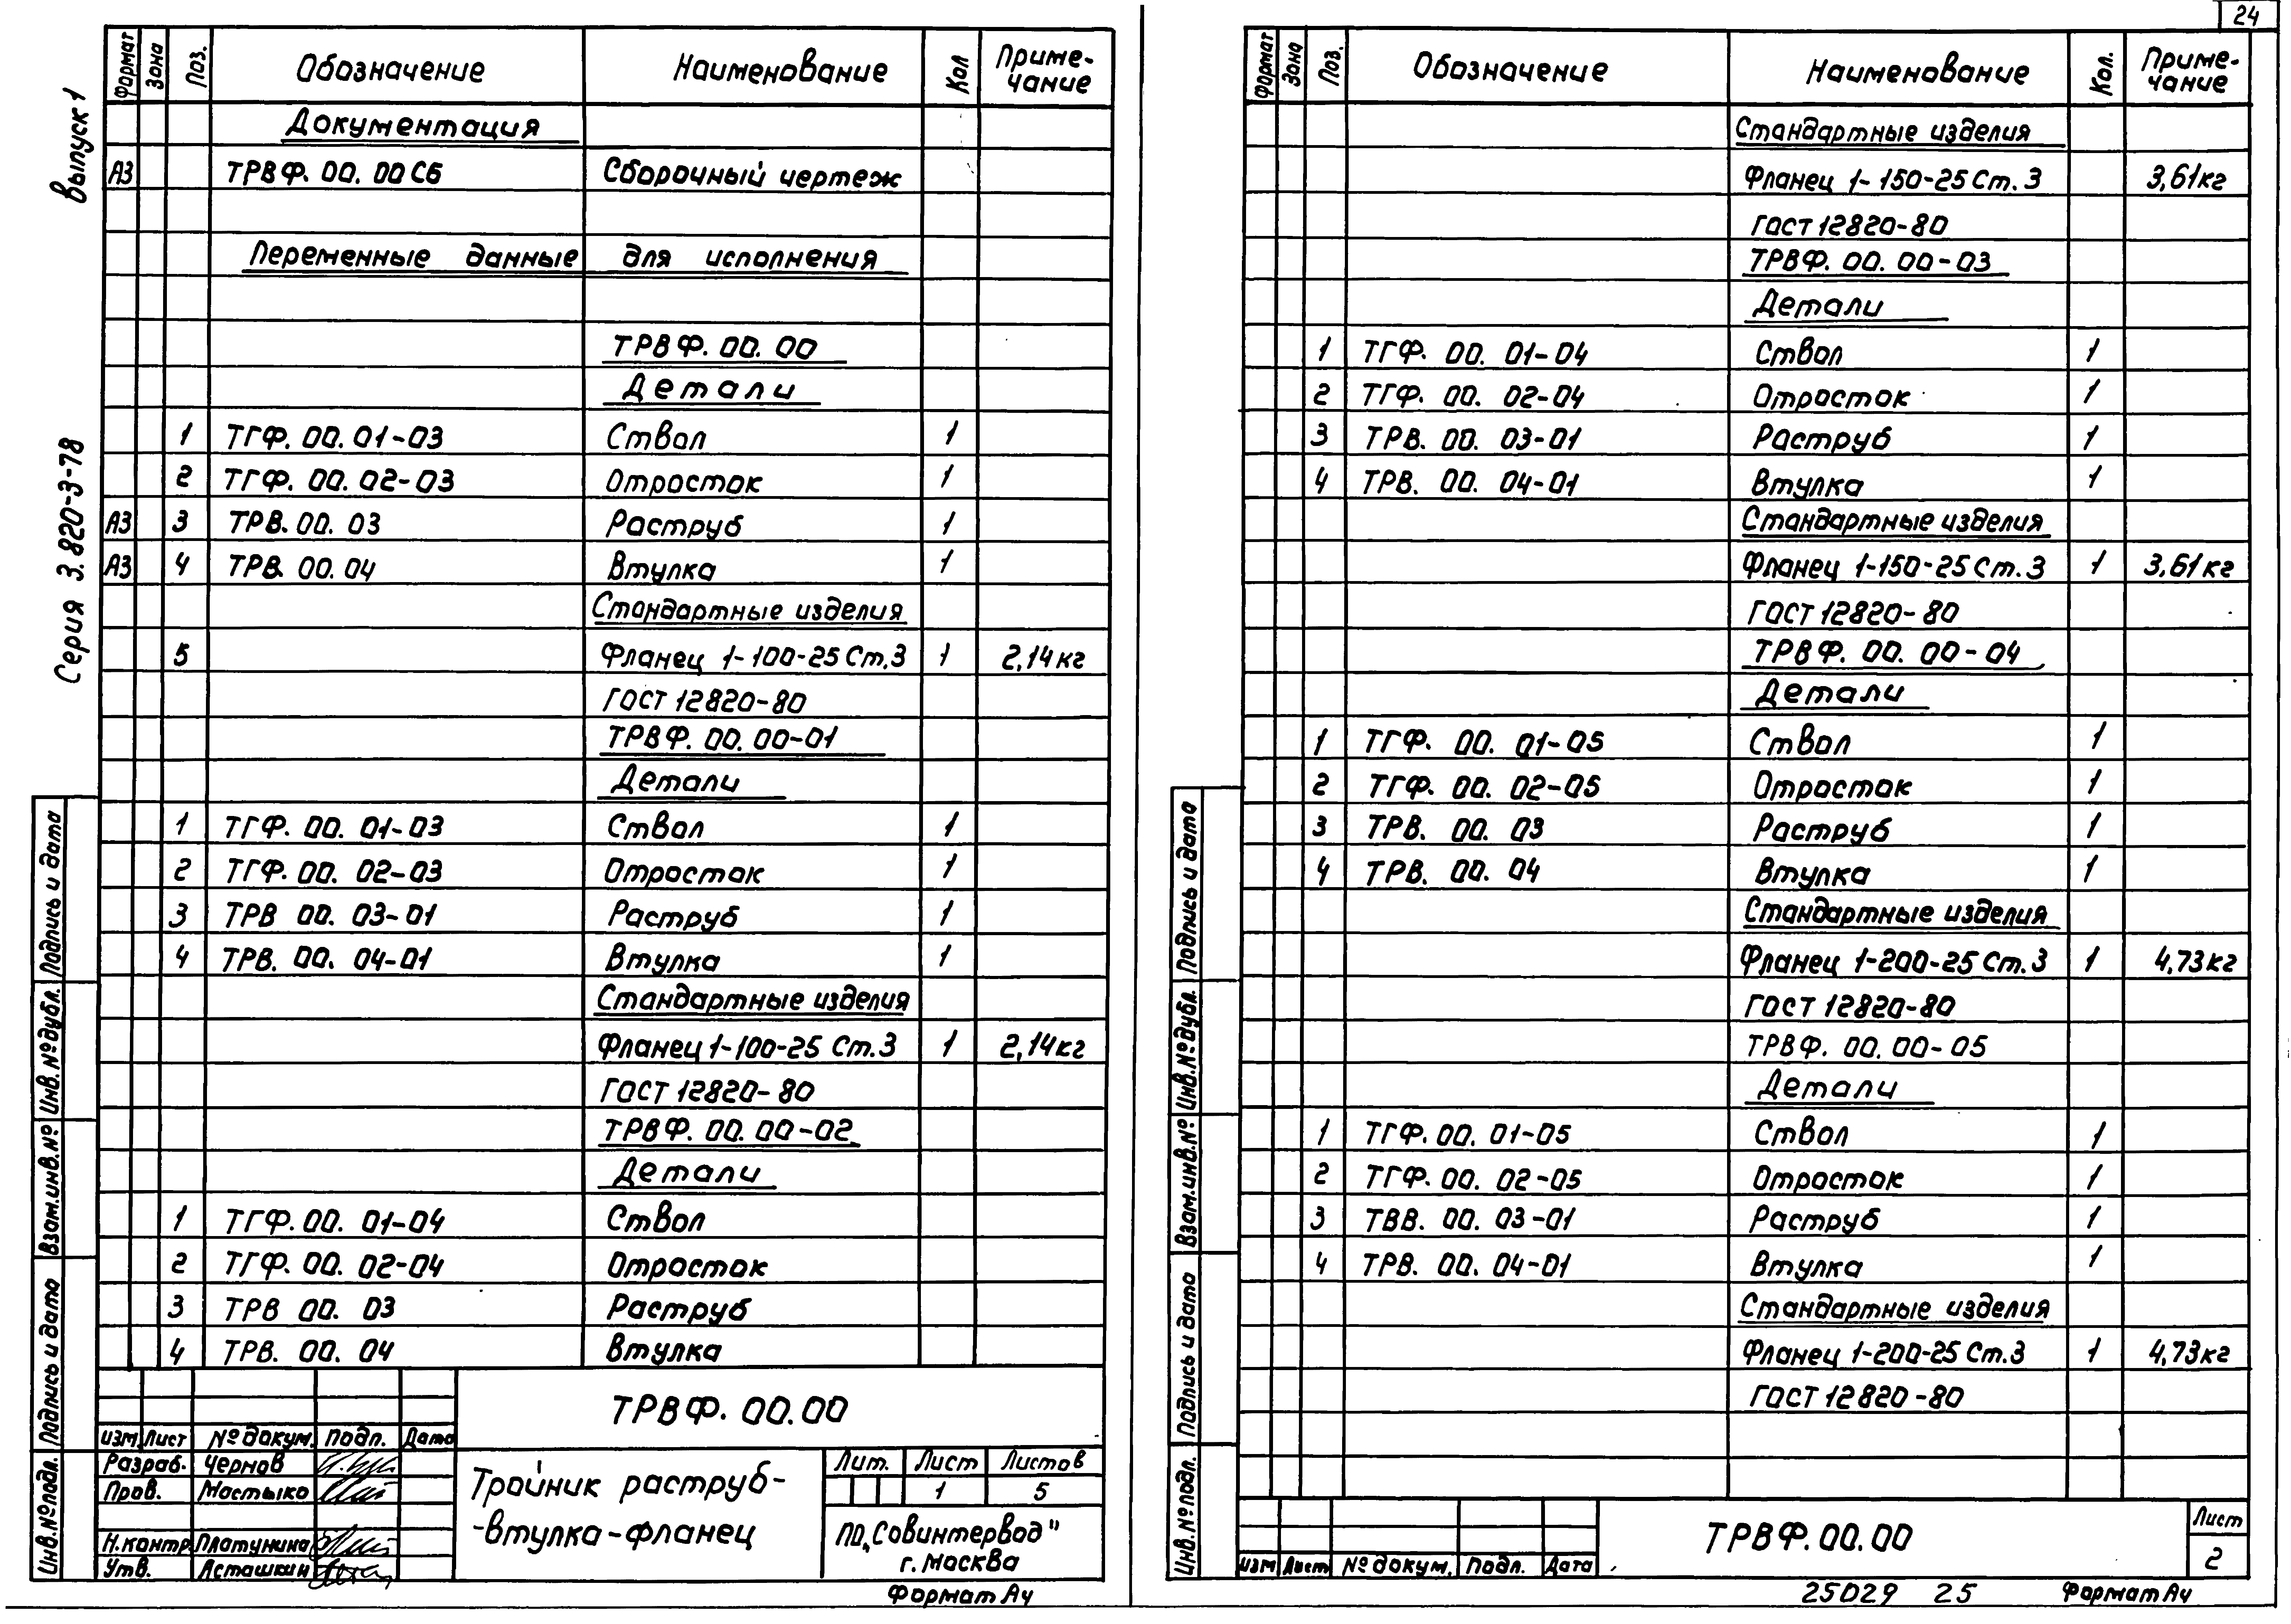 Выпуск 1
Серия 3.820-3-78
Формат Зона Поз. Обозначение Наименование Кол Приме-чание
Документация
А3 ТРВФ.00.00СБ Сборочный чертеж
Переменные данные для исполнения
ТРВФ.00.00
Детали
1 ТГФ.00.01-03 Ствол 1
2 ТГФ.00.02-03 Отросток 1
А3 3 ТРВ.00.03 Раструб 1
А3 4 ТРВ.00.04 Втулка 1
Стандартные изделия
5 Фланец 1-100-25 Ст.3 1 2,14кг
ГОСТ 12820-80
ТРВФ.00.00-01
Детали
1 ТГФ.00.01-03 Ствол 1
2 ТГФ.00.02-03 Отросток 1
3 ТРВ 00.03-01 Раструб 1
4 ТРВ.00.04-01 Втулка 1
Стандартные изделия
Фланец 1-100-25 Ст.3 1 2,14кг
ГОСТ 12820-80
ТРВФ.00.00-02
Детали
1 ТГФ.00.01-04 Ствол
2 ТГФ.00.02-04 Отросток
3 ТРВ 00.03 Раструб
4 ТРВ.00.04 Втулка
Инв.№подл. Подпись и дата Взам.инв.№ Инв.№дубл. Подпись и дата
ТРВФ.00.00
изм. Лист №докум. Подп. Дата
Разраб. Чернов
Пров. Мостыко
Н.контр. Платунина
Утв. Асташкин
Тройник раструб-
-втулка-фланец
Лит. Лист Листов
1 5
ПО„Совинтервод"
г.Москва
Формат А4
24
Формат Зона Поз. Обозначение Наименование Кол. Приме-чание
Стандартные изделия
Фланец 1-150-25 Ст.3 3,61кг
ГОСТ 12820-80
ТРВФ.00.00-03
Детали
1 ТГФ.00.01-04 Ствол 1
2 ТГФ.00.02-04 Отросток 1
3 ТРВ.00.03-01 Раструб 1
4 ТРВ.00.04-01 Втулка 1
Стандартные изделия
Фланец 1-150-25 Ст.3 1 3,61кг
ГОСТ 12820-80
ТРВФ.00.00-04
Детали
1 ТГФ.00.01-05 Ствол 1
2 ТГФ.00.02-05 Отросток 1
3 ТРВ.00.03 Раструб 1
4 ТРВ.00.04 Втулка 1
Стандартные изделия
Фланец 1-200-25 Ст.3 1 4,73кг
ГОСТ 12820-80
ТРВФ.00.00-05
Детали
1 ТГФ.00.01-05 Ствол 1
2 ТГФ.00.02-05 Отросток 1
3 ТВВ.00.03-01 Раструб 1
4 ТРВ.00.04-01 Втулка 1
Стандартные изделия
Фланец 1-200-25 Ст.3 1 4,73кг
ГОСТ 12820-80
Инв.№подл. Подпись и дата Взам.инв.№ Инв.№дубл. Подпись и дата
изм Лист №докум. Подп. Дата
ТРВФ.00.00
Лист
2
25029 25 Формат А4